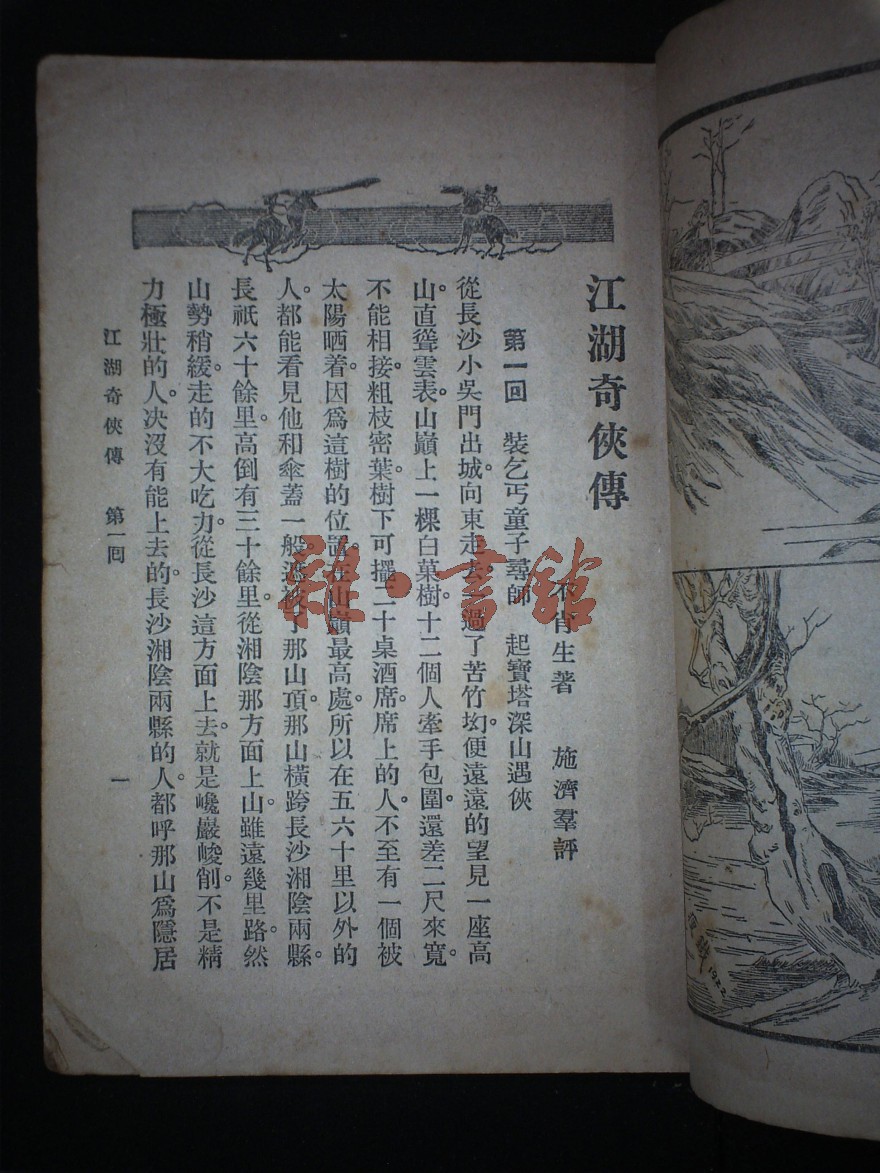 江湖奇俠傳
不肖生著　施濟羣評
第一回　裝乞丐童子尋師　起寶塔深山遇俠
從長沙小吳門出城。向東走去。過了苦竹坳。便遠遠的望見一座高
山。直聳雲表。山巔上一棵白菓樹。十二個人牽手包圍。還差二尺來寬。
不能相接。粗枝密葉。樹下可擺二十桌酒席。席上的人。不至有一個被
太陽晒着。因爲這樹的位置在山巔最高處。所以在五六十里以外的
人。都能看見他和傘蓋一般。遮被了那山頂。那山橫跨長沙湘陰兩縣。
長祇六十餘里。高倒有三十餘里。從湘陰那方面上山。雖遠幾里路。然
山勢稍緩。走的不大吃力。從長沙這方面上去。就是巉巖峻削。不是精
力極壯的人。决沒有能上去的。長沙湘陰兩縣的人。都呼那山爲隱居
江湖奇俠傳　第一回　一
雜·書館
1922